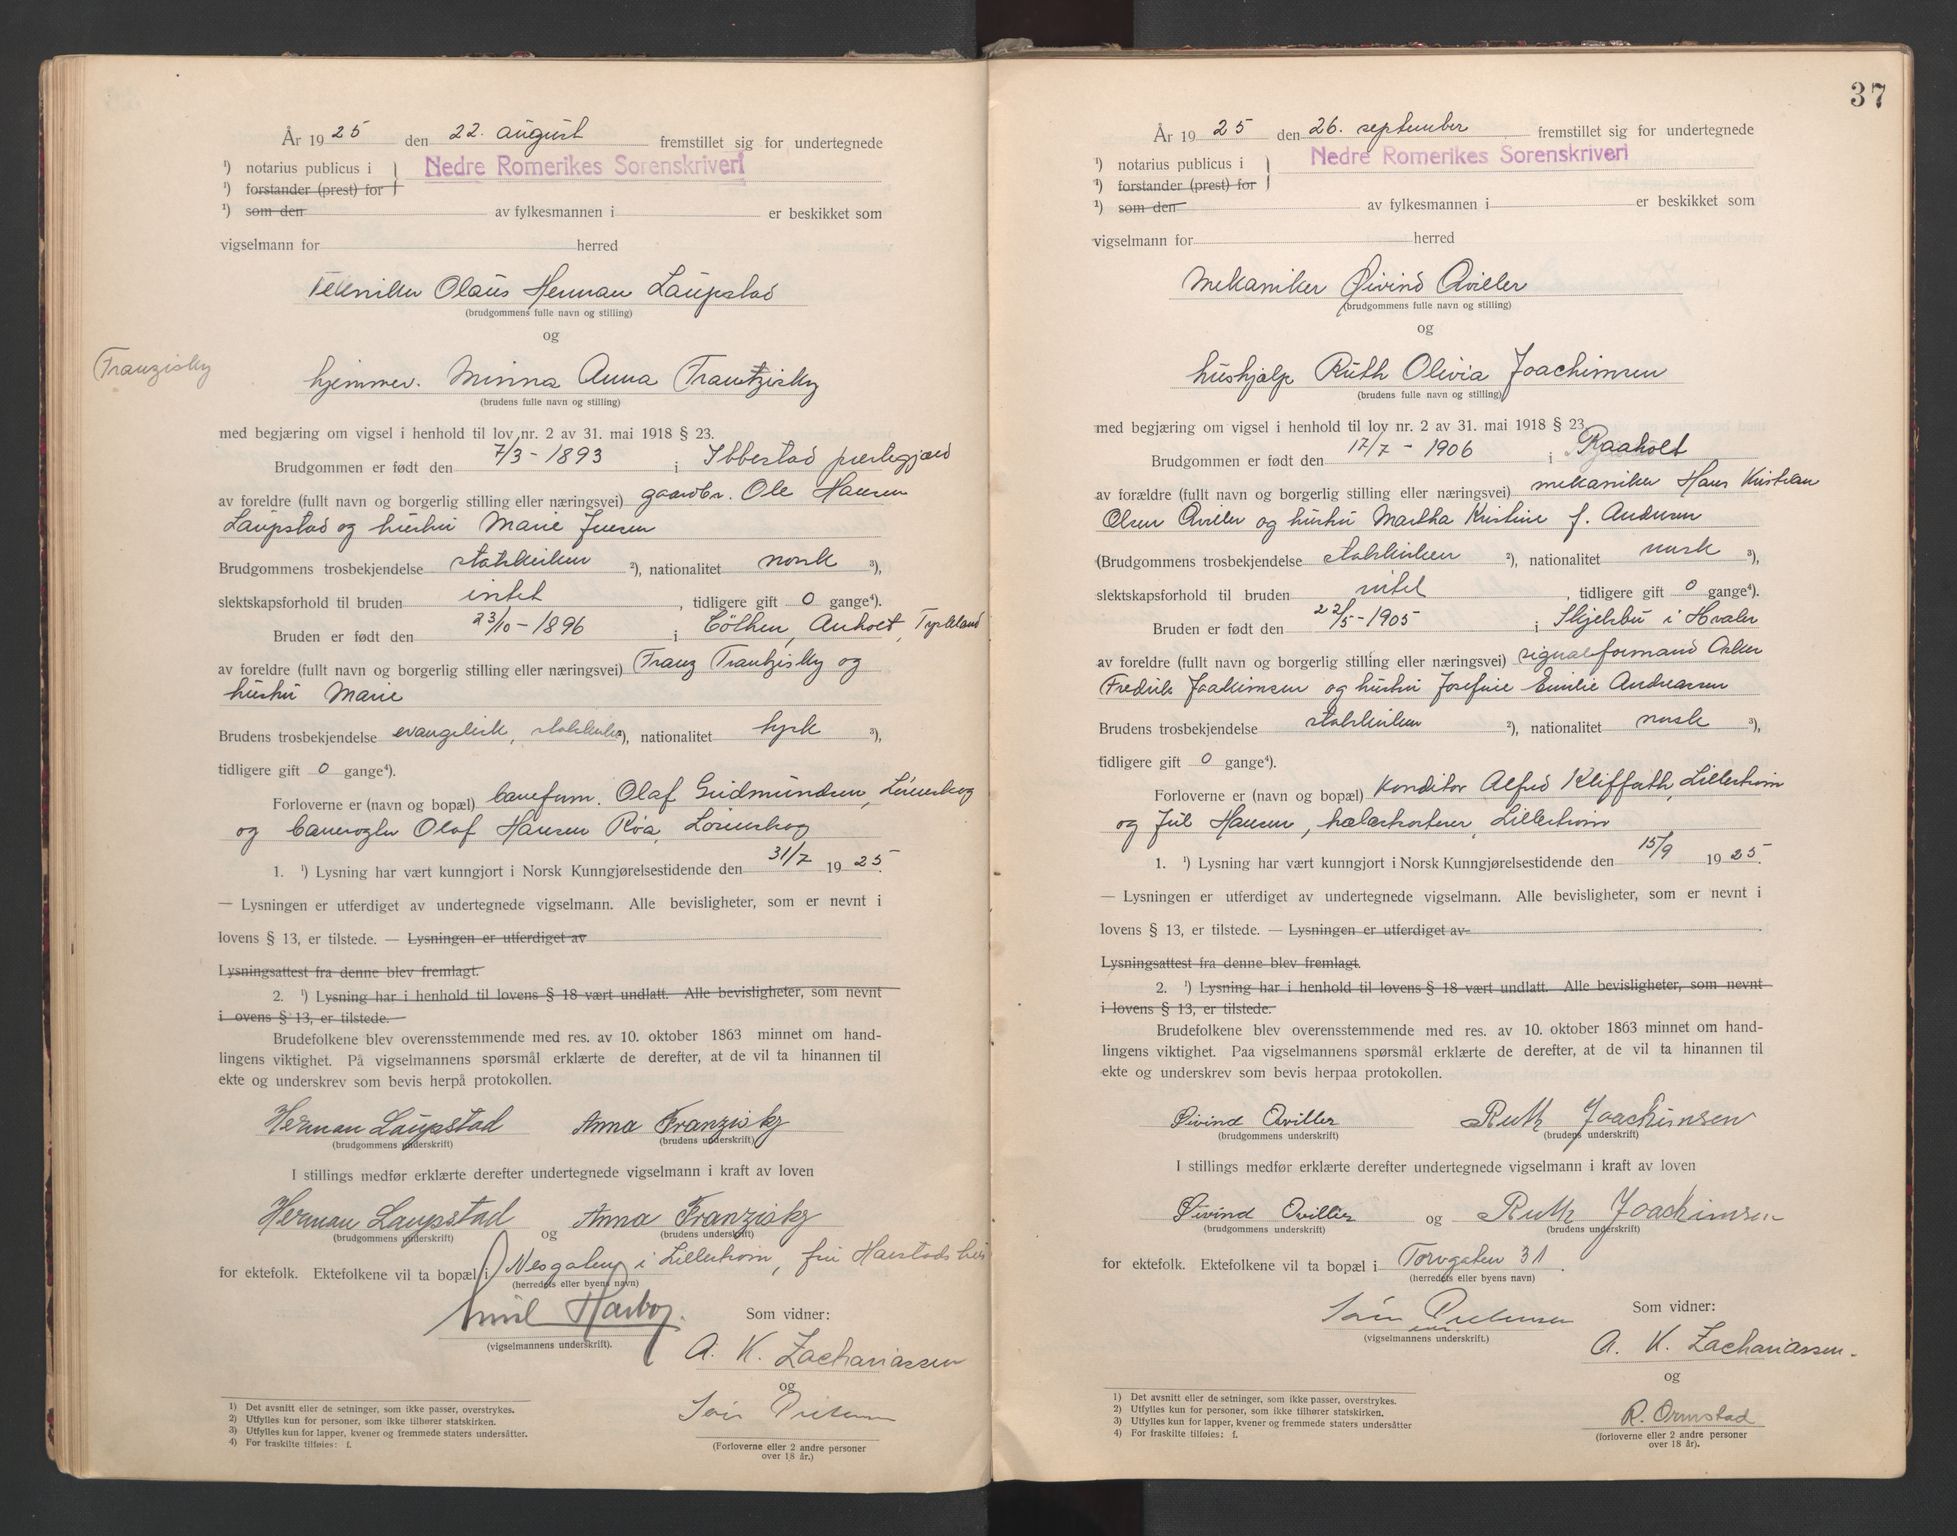 År 1925 den 22. august fremstillet sig for undertegnede
¹) notarius publicus i } Nedre Romerikes Sorenskriveri
¹) forstander (prest) for
¹) som den av fylkesmannen i er beskikket som
vigselmann for herred
Tekniker Olaus Herman Laupstad
(brudgommens fulle navn og stilling)
og
Franzisky
hjemmev. Minna Anna Frantzisky
(brudens fulle navn og stilling)
med begjæring om vigsel i henhold til lov nr. 2 av 31. mai 1918 § 23.
Brudgommen er født den 7/3 - 1893 i Ibbestad prestegjæld
av foreldre (fullt navn og borgerlig stilling eller næringsvei) gaardbr. Ole Hansen
Laupstad og hustru Marie Jensen
Brudgommens trosbekjendelse statskirken ²), nationalitet norsk ³),
slektskapsforhold til bruden intet, tidligere gift 0 gange⁴).
Bruden er født den 23/10 - 1896 i Cöthen, Anholt, Tyskland
av foreldre (fullt navn og borgerlig stilling eller næringsvei) Franz Frantzisky og
hustru Marie
Brudens trosbekjendelse evangelisk, statskirke ²), nationalitet tysk ³),
tidligere gift 0 gange⁴).
Forloverne er (navn og bopæl) baneform. Olaf Gudmundsen, Lørenskog
og banevogter Olaf Hansen Røa, Lørenskog
1. ¹) Lysning har vært kunngjort i Norsk Kunngjørelsestidende den 31/7 1925.
— Lysningen er utferdiget av undertegnede vigselmann. Alle bevisligheter, som er nevnt i
lovens § 13, er tilstede. — Lysningen er utferdiget av
Lysningsattest fra denne blev fremlagt.
2. ¹) Lysning har i henhold til lovens § 18 vært undlatt. Alle bevisligheter, som nevnt
i ovens § 13, er tilstede.
Brudefolkene blev overensstemmende med res. av 10. oktober 1863 minnet om hand-
lingens viktighet. På vigselmannens spørsmål erklærte de derefter, at de vil ta hinannen til
ekte og underskrev som bevis herpå protokollen.
Herman Laupstad Anna Franzisky
(brudgommens underskrift) (brudens underskrift)
I stillings medfør erklærte derefter undertegnede vigselmann i kraft av loven
Herman Laupstad og Anna Franzisky
(brudgommens underskrift) (brudens underskrift)
for ektefolk. Ektefolkene vil ta bopæl i Nesgaten i Lillestrøm, fru Harstads hus
(herredets eller byens navn)
Emil Harbog
(vigselmannens underskrift).
Som vidner:
A. K. Zachariassen
og
Sørn Pretersen
(Forloverne eller 2 andre personer
over 18 år.)
1) Det avsnitt eller de setninger, som ikke passer, overstrykes.
2) Utfylles kun for personer, som ikke tilhører statskirken.
3) Utfylles kun for lapper, kvener og fremmede staters undersåtter.
4) For fraskilte tilføies: f.
37
År 1925 den 26. september fremstillet sig for undertegnede
¹) notarius publicus i } Nedre Romerikes Sorenskriveri
¹) forstander (prest) for
¹) som den av fylkesmannen i er beskikket som
vigselmann for herred
Mekaniker Øivind Qviller
(brudgommens fulle navn og stilling)
og
hushjælp Ruth Olivia Joachimsen
(brudens fulle navn og stilling)
med begjæring om vigsel i henhold til lov nr. 2 av 31. mai 1918 § 23.
Brudgommen er født den 17/7 - 1906 i Raaholt
av forældre (fullt navn og borgerlig stilling eller næringsvei) mekaniker Hans Kristian
Olsen Qviller og hustru Martha Kristine f. Andersen
(Brudgommens trosbekjendelse statskirken ²), nationalitet norsk ³),
slektskapsforhold til bruden intet, tidligere gift 0 gange⁴).
Bruden er født den 22/5 - 1905 i Skjelsbu i Hvaler
av foreldre (fullt navn og borgerlig stilling eller næringsvei) signalformand Oskar
Fredrik Joakimsen og hustru Josefine Emilie Andreassen
Brudens trosbekjendelse statskirken ²), nationalitet norsk ³),
tidligere gift 0 gange⁴).
Forloverne er (navn og bopæl) Konditor Alfred Kliffath, Lillestrøm
og Jul Hansen, Lillestrøm
1. ¹) Lysning har vært kunngjort i Norsk Kunngjørelsestidende den 15/9 1925.
— Lysningen er utferdiget av undertegnede vigselmann. Alle bevisligheter, som er nevnt i
lovens § 13, er tilstede. — Lysningen er utferdiget av
Lysningsattest fra denne blev fremlagt.
2. ¹) Lysning har i henhold til lovens § 18 vært undlatt. Alle bevisligheter, som nevnt
i lovens § 13, er tilstede.
Brudefolkene blev overensstemmende med res. av 10. oktober 1863 minnet om hand-
lingens viktighet. Paa vigselmannens spørsmål erklærte de derefter, at de vil ta hinannen til
ekte og underskrev som bevis herpaa protokollen.
Øivind Qviller Ruth Joachimsen
(brudgommens underskrift) (brudens underskrift)
I stillings medfør erklærte derefter undertegnede vigselmann i kraft av loven
Øivind Qviller og Ruth Joachimsen
(brudgommens underskrift) (brudens underskrift)
for ektefolk. Ektefolkene vil ta bopæl i Torvgaten 31
(herredets eller byens navn)
Sørn Pretersen
(vigselmannens underskrift.)
Som vidner:
A. K. Zachariassen.
og
R. Ormstad
(forloverne eller 2 andre personer
over 18 år).
1) Det avsnitt eller de setninger, som ikke passer, overstrykes.
2) Utfylles kun for personer, som ikke tilhører statskirken.
3) Utfylles kun for lapper, kvener og fremmede staters undersåtter
4) For fraskilte tilføies: f.